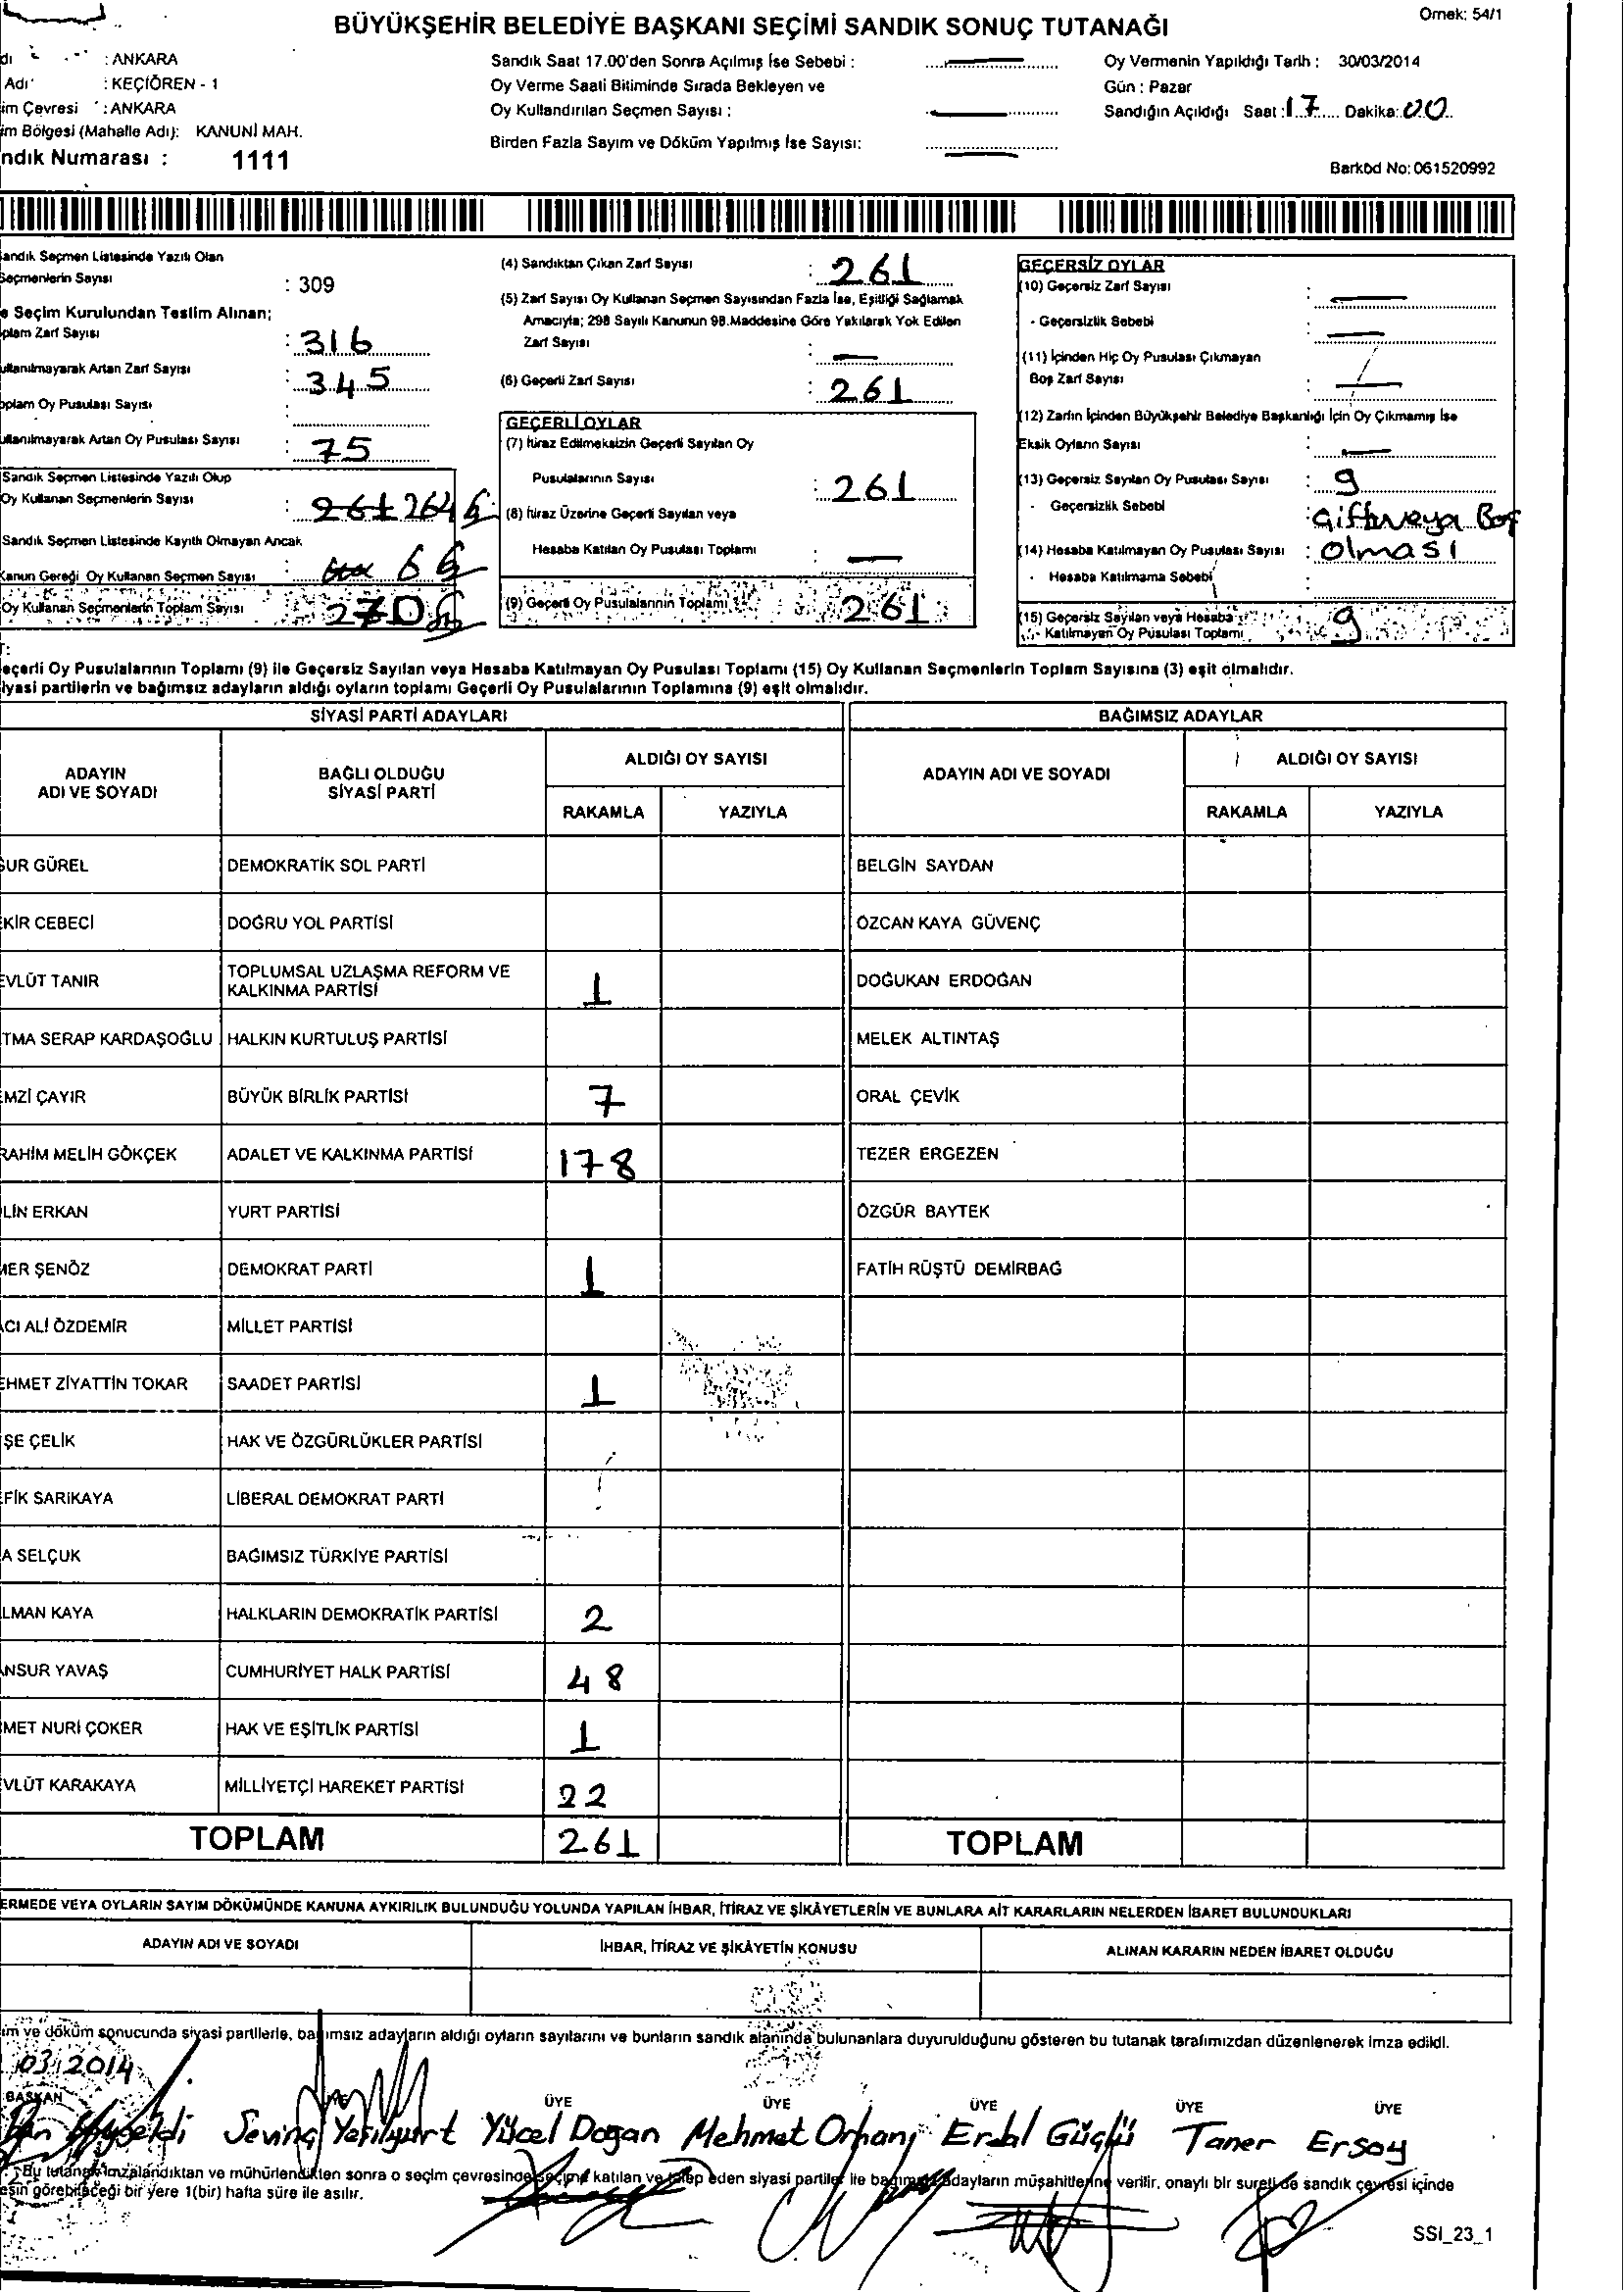 Örnek: 54/1
BÜYÜKŞEHİR BELEDİYE BAŞKANI SEÇİMİ SANDIK SONUÇ TUTANAĞI
dı : ANKARA
Adı : KEÇİÖREN - 1
im Çevresi : ANKARA
im Bölgesi (Mahalle Adı): KANUNİ MAH.
ndık Numarası : 1111
Sandık Saat 17.00'den Sonra Açılmış İse Sebebi : —
Oy Verme Saati Bitiminde Sırada Bekleyen ve
Oy Kullandırılan Seçmen Sayısı : —
Birden Fazla Sayım ve Döküm Yapılmış İse Sayısı: —
Oy Vermenin Yapıldığı Tarih : 30/03/2014
Gün : Pazar
Sandığın Açıldığı Saat : 17 Dakika: 00
Barkod No: 061520992
andık Seçmen Listesinde Yazılı Olan
Seçmenlerin Sayısı : 309
e Seçim Kurulundan Teslim Alınan;
plam Zarf Sayısı : 316
ullanılmayarak Artan Zarf Sayısı : 345
oplam Oy Pusulası Sayısı :
ullanılmayarak Artan Oy Pusulası Sayısı : 75
Sandık Seçmen Listesinde Yazılı Olup
Oy Kullanan Seçmenlerin Sayısı : 261 264
Sandık Seçmen Listesinde Kayıtlı Olmayan Ancak
Kanun Gereği Oy Kullanan Seçmen Sayısı : 6
Oy Kullanan Seçmenlerin Toplam Sayısı : 270
(4) Sandıktan Çıkan Zarf Sayısı : 261
(5) Zarf Sayısı Oy Kullanan Seçmen Sayısından Fazla İse, Eşitliği Sağlamak
Amacıyla; 298 Sayılı Kanunun 98.Maddesine Göre Yakılarak Yok Edilen
Zarf Sayısı : —
(6) Geçerli Zarf Sayısı : 261
GEÇERLİ OYLAR
(7) İtiraz Edilmeksizin Geçerli Sayılan Oy
Pusulalarının Sayısı : 261
(8) İtiraz Üzerine Geçerli Sayılan veya
Hesaba Katılan Oy Pusulası Toplamı : —
(9) Geçerli Oy Pusulalarının Toplamı : 261
GEÇERSİZ OYLAR
(10) Geçersiz Zarf Sayısı : —
- Geçersizlik Sebebi : —
(11) İçinden Hiç Oy Pusulası Çıkmayan
Boş Zarf Sayısı : —
(12) Zarfın İçinden Büyükşehir Belediye Başkanlığı İçin Oy Çıkmamış İse
Eksik Oyların Sayısı : —
(13) Geçersiz Sayılan Oy Pusulası Sayısı : 9
- Geçersizlik Sebebi : Çift veya Boş
(14) Hesaba Katılmayan Oy Pusulası Sayısı : olması
- Hesaba Katılmama Sebebi :
(15) Geçersiz Sayılan veya Hesaba
Katılmayan Oy Pusulası Toplamı 9
T:
eçerli Oy Pusulalarının Toplamı (9) ile Geçersiz Sayılan veya Hesaba Katılmayan Oy Pusulası Toplamı (15) Oy Kullanan Seçmenlerin Toplam Sayısına (3) eşit olmalıdır.
iyasi partilerin ve bağımsız adayların aldığı oyların toplamı Geçerli Oy Pusulalarının Toplamına (9) eşit olmalıdır.
SİYASİ PARTİ ADAYLARI BAĞIMSIZ ADAYLAR
ADAYIN ADI VE SOYADI BAĞLI OLDUĞU SİYASİ PARTİ ALDIĞI OY SAYISI ADAYIN ADI VE SOYADI ALDIĞI OY SAYISI
RAKAMLA YAZIYLA RAKAMLA YAZIYLA
SUR GÜREL DEMOKRATİK SOL PARTİ BELGİN SAYDAN
EKİR CEBECİ DOĞRU YOL PARTİSİ ÖZCAN KAYA GÜVENÇ
EVLÜT TANIR TOPLUMSAL UZLAŞMA REFORM VE KALKINMA PARTİSİ 1 DOĞUKAN ERDOĞAN
TMA SERAP KARDAŞOĞLU HALKIN KURTULUŞ PARTİSİ MELEK ALTINTAŞ
EMZİ ÇAYIR BÜYÜK BİRLİK PARTİSİ 7 ORAL ÇEVİK
RAHİM MELİH GÖKÇEK ADALET VE KALKINMA PARTİSİ 178 TEZER ERGEZEN
LİN ERKAN YURT PARTİSİ ÖZGÜR BAYTEK
MER ŞENÖZ DEMOKRAT PARTİ 1 FATİH RÜŞTÜ DEMİRBAĞ
ACI ALİ ÖZDEMİR MİLLET PARTİSİ
EHMET ZİYATTİN TOKAR SAADET PARTİSİ 1
ŞE ÇELİK HAK VE ÖZGÜRLÜKLER PARTİSİ
EFİK SARIKAYA LİBERAL DEMOKRAT PARTİ
A SELÇUK BAĞIMSIZ TÜRKİYE PARTİSİ
LMAN KAYA HALKLARIN DEMOKRATİK PARTİSİ 2
ANSUR YAVAŞ CUMHURİYET HALK PARTİSİ 48
MET NURİ ÇOKER HAK VE EŞİTLİK PARTİSİ 1
VLÜT KARAKAYA MİLLİYETÇİ HAREKET PARTİSİ 22
TOPLAM 261 TOPLAM
ERMEDE VEYA OYLARIN SAYIM DÖKÜMÜNDE KANUNA AYKIRILIK BULUNDUĞU YOLUNDA YAPILAN İHBAR, İTİRAZ VE ŞİKÂYETLERİN VE BUNLARA AİT KARARLARIN NELERDEN İBARET BULUNDUKLARI
ADAYIN ADI VE SOYADI İHBAR, İTİRAZ VE ŞİKÂYETİN KONUSU ALINAN KARARIN NEDEN İBARET OLDUĞU
ım ve döküm sonucunda siyasi partilerle, bağımsız adayların aldığı oyların sayılarını ve bunların sandık alanında bulunanlara duyurulduğunu gösteren bu tutanak tarafımızdan düzenlenerek imza edildi.
03/2014
BAŞKAN ÜYE ÜYE ÜYE ÜYE ÜYE
Sevinç Yeşilyurt Yücel Doğan Mehmet Orhan Erdal Güçlü Taner Ersoy
Bu tutanak imzalandıktan ve mühürlendikten sonra o seçim çevresinde seçime katılan ve talep eden siyasi partiler ile bağımsız adayların müşahitlerine verilir, onaylı bir sureti de sandık çevresi içinde
esin görebileceği bir yere 1(bir) hafta süre ile asılır.
SSI_23_1